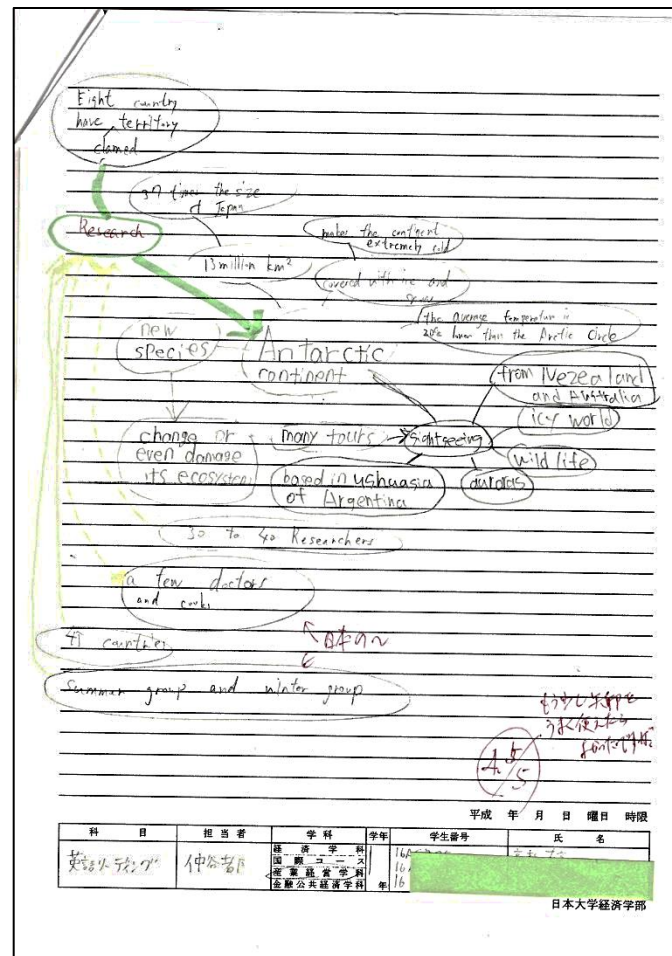 Eight country
have territory
clamed
37 times the size
of Japan
Research
makes the continent
extremely cold
13 million km²
covered with ice and
the average temperature is
20℃ lower than the Arctic Circle
new
species
Antarctic
continent
from Nezealand
and Australia
icy world
change or
even damage
its ecosystem
many tours
sightseeing
wild life
based in ushuasia
of Argentina
auroras
30 to 40 Researchers
a few doctors
and cooks
countries
日本の
summer group and winter group
もう少し
うまく使えたら
よかったですね
4.5/5
平成 年 月 日 曜日 時限
科 目 担 当 者 学 科 学年 学生番号 氏 名
英語リーディング
経済学科
国際コース
産業経営学科
金融公共経済学科 年
16
16
16
日本大学経済学部